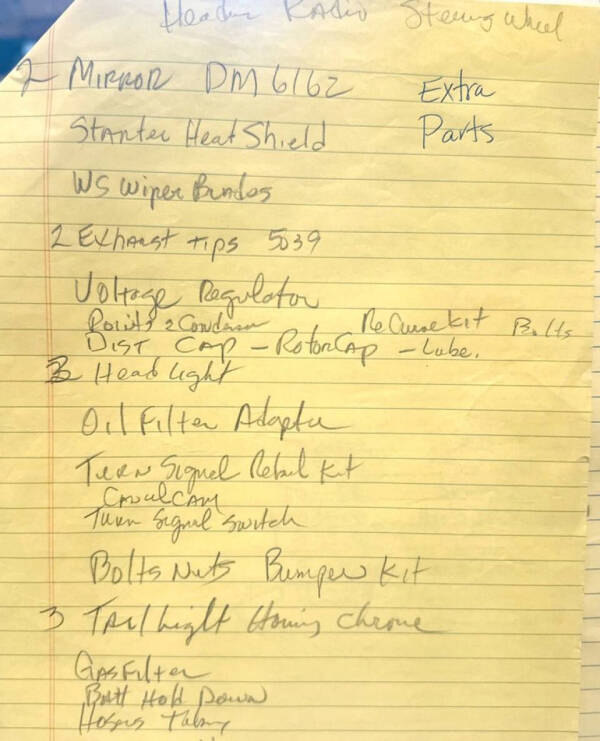 Header Radio Steering Wheel
2 Mirror DM6162
Extra
Parts
Starter Heat Shield
WS Wiper
2 Exhaust Tips 5039
Voltage Regulator
Points 2 Bolts
Dist Cap - Rotor Cap - Lube.
Head Light
Oil Filter Adapter
Turn Signal Kit
Turn Signal Switch
Bolts Nuts Bumper Kit
3 Tail Light Chrome
Gas Filter
Batt Hold Down